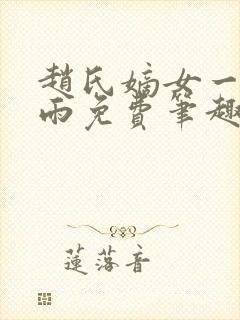 趙氏嫡女一
雨免費筆趣
蓮落音